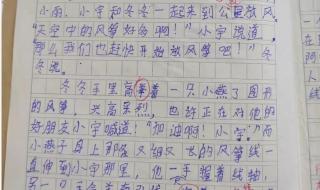 小雨、小宇和冬冬一起来到公园放风
"天空中的风筝好多啊!"小宇说道,
"那么我们也赶快开始放风筝吧!"冬
冬说。
冬冬手里高举着一只小燕子图形
的风筝,兴高采烈,也许正在对他的
好朋友小宇喊道:"加油啊!小宇"而
小燕子身上那条又细又长的风筝线一
直伸到小宇那里,他一手握着线轴,